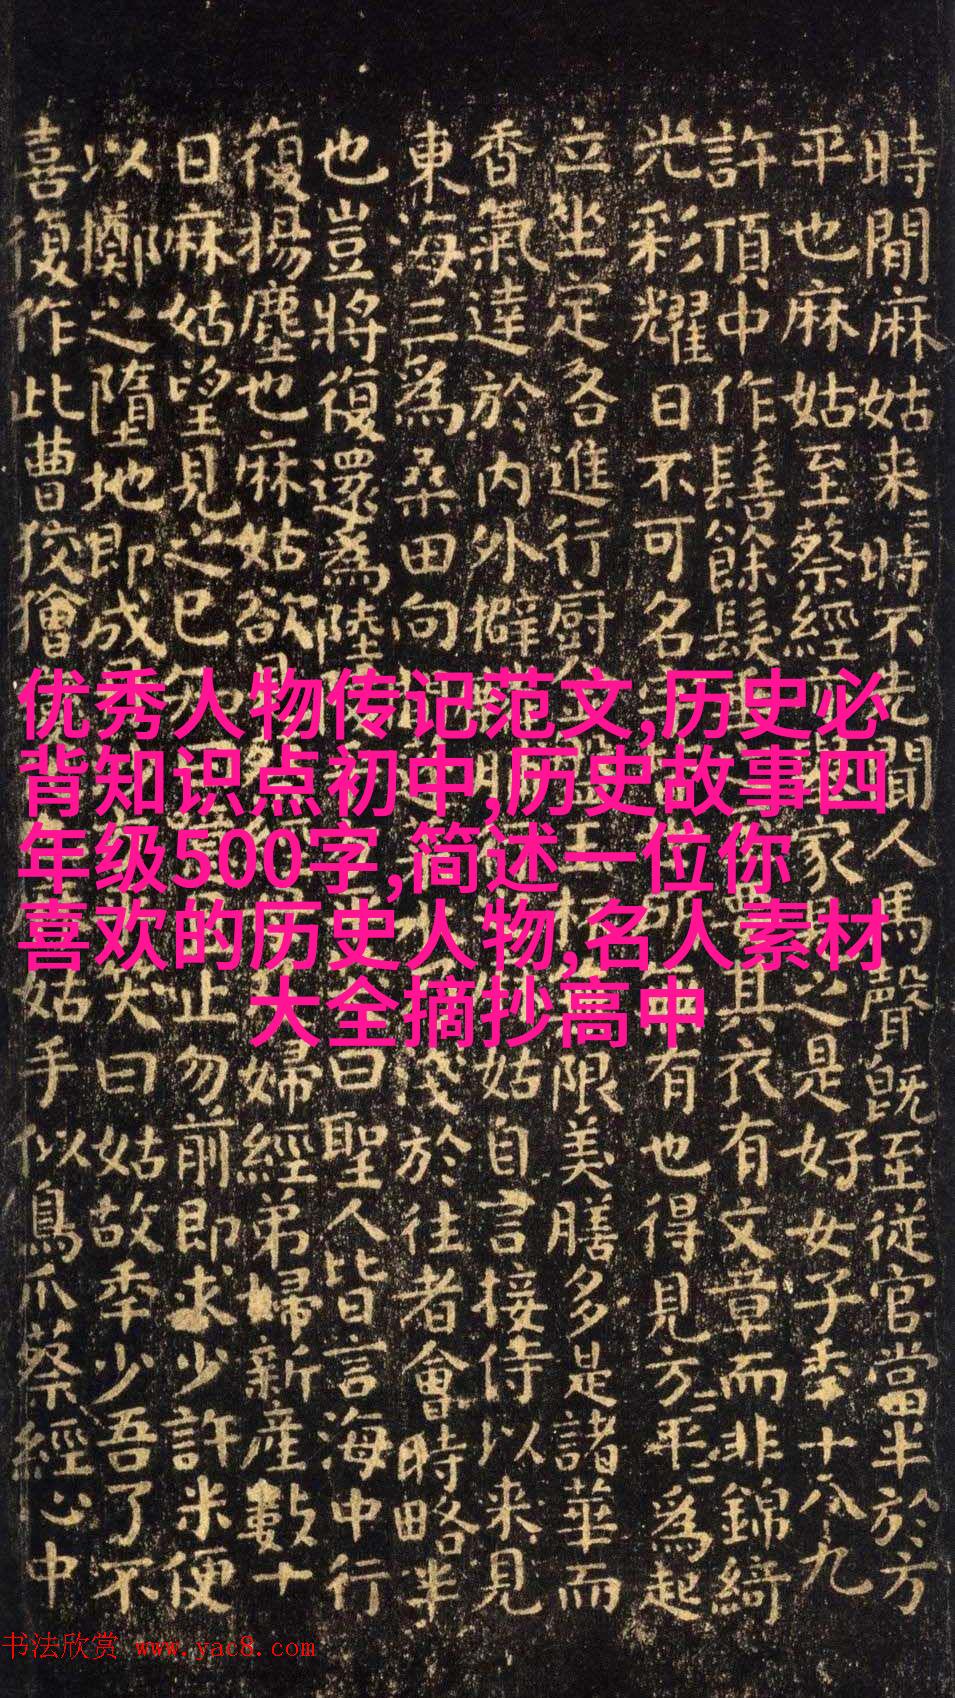 時間麻姑来=時不先聞人馬聲既至従官當半於方
平也麻姑至蔡經家之是好女子季十八九
許頂中作髻餘其衣有文章而非錦綺
光彩耀日不可名有也得見方平二為起
立坐定各進行廚限美膳多是諸華而
香氣達於内外擗姑自言接侍以来見
東海三為桑田向淺於往者會時略半
也豈將復還為陸曰聖人皆言海中行
復揚塵也麻姑欲婦經弟婦新産數十
日麻姑望見之已止勿前即求少許米便
以擲之墮地即成笑曰姑故季少吾了不
喜復作此曹狡獪姑手似鳥爪蔡經心中
优秀人物传记范文,历史必
背知识点初中,历史故事四
年级500字,简述一位你
喜欢的历史人物,名人素材
大全摘抄高中
书法欣赏 www.yac8.com